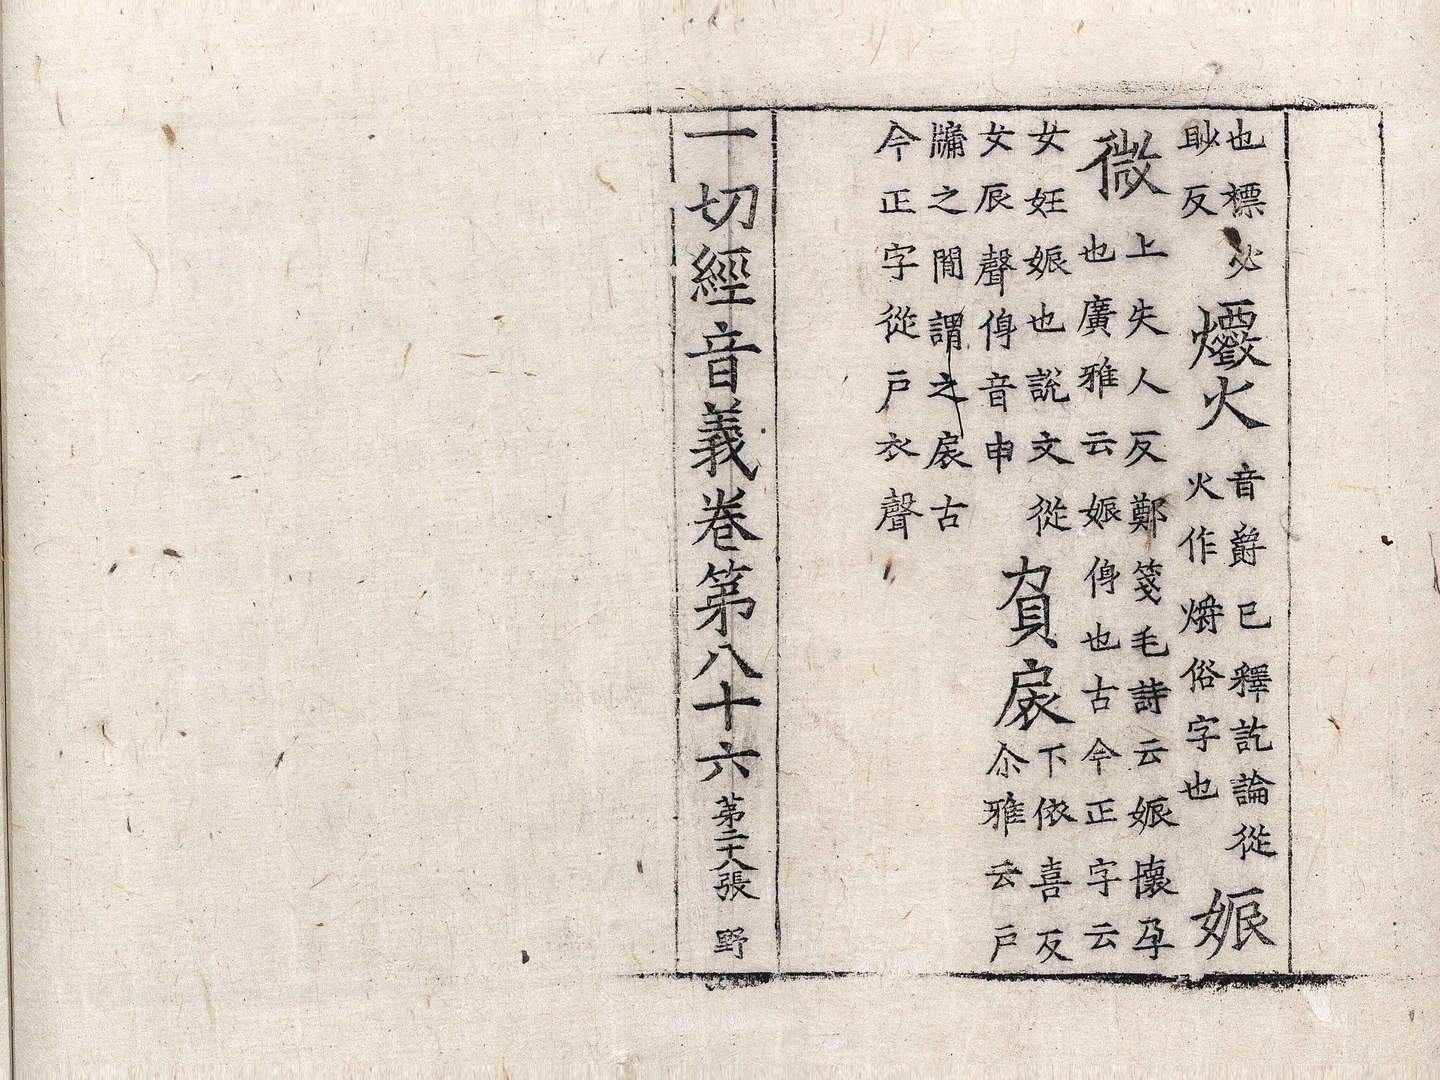 也標必
眇反
爝火
音爵已釋訖論從
火作爝俗字也
娠
微
上失人反鄭箋毛詩云娠懷孕
也廣雅云娠㑗也古今正字云
女妊娠也說文從
女辰聲㑗音申
負扆
下依喜反
尒雅云戶
牖之間謂之扆古
今正字從戶衣聲
一切經音義卷第八十六 第二十八張 野